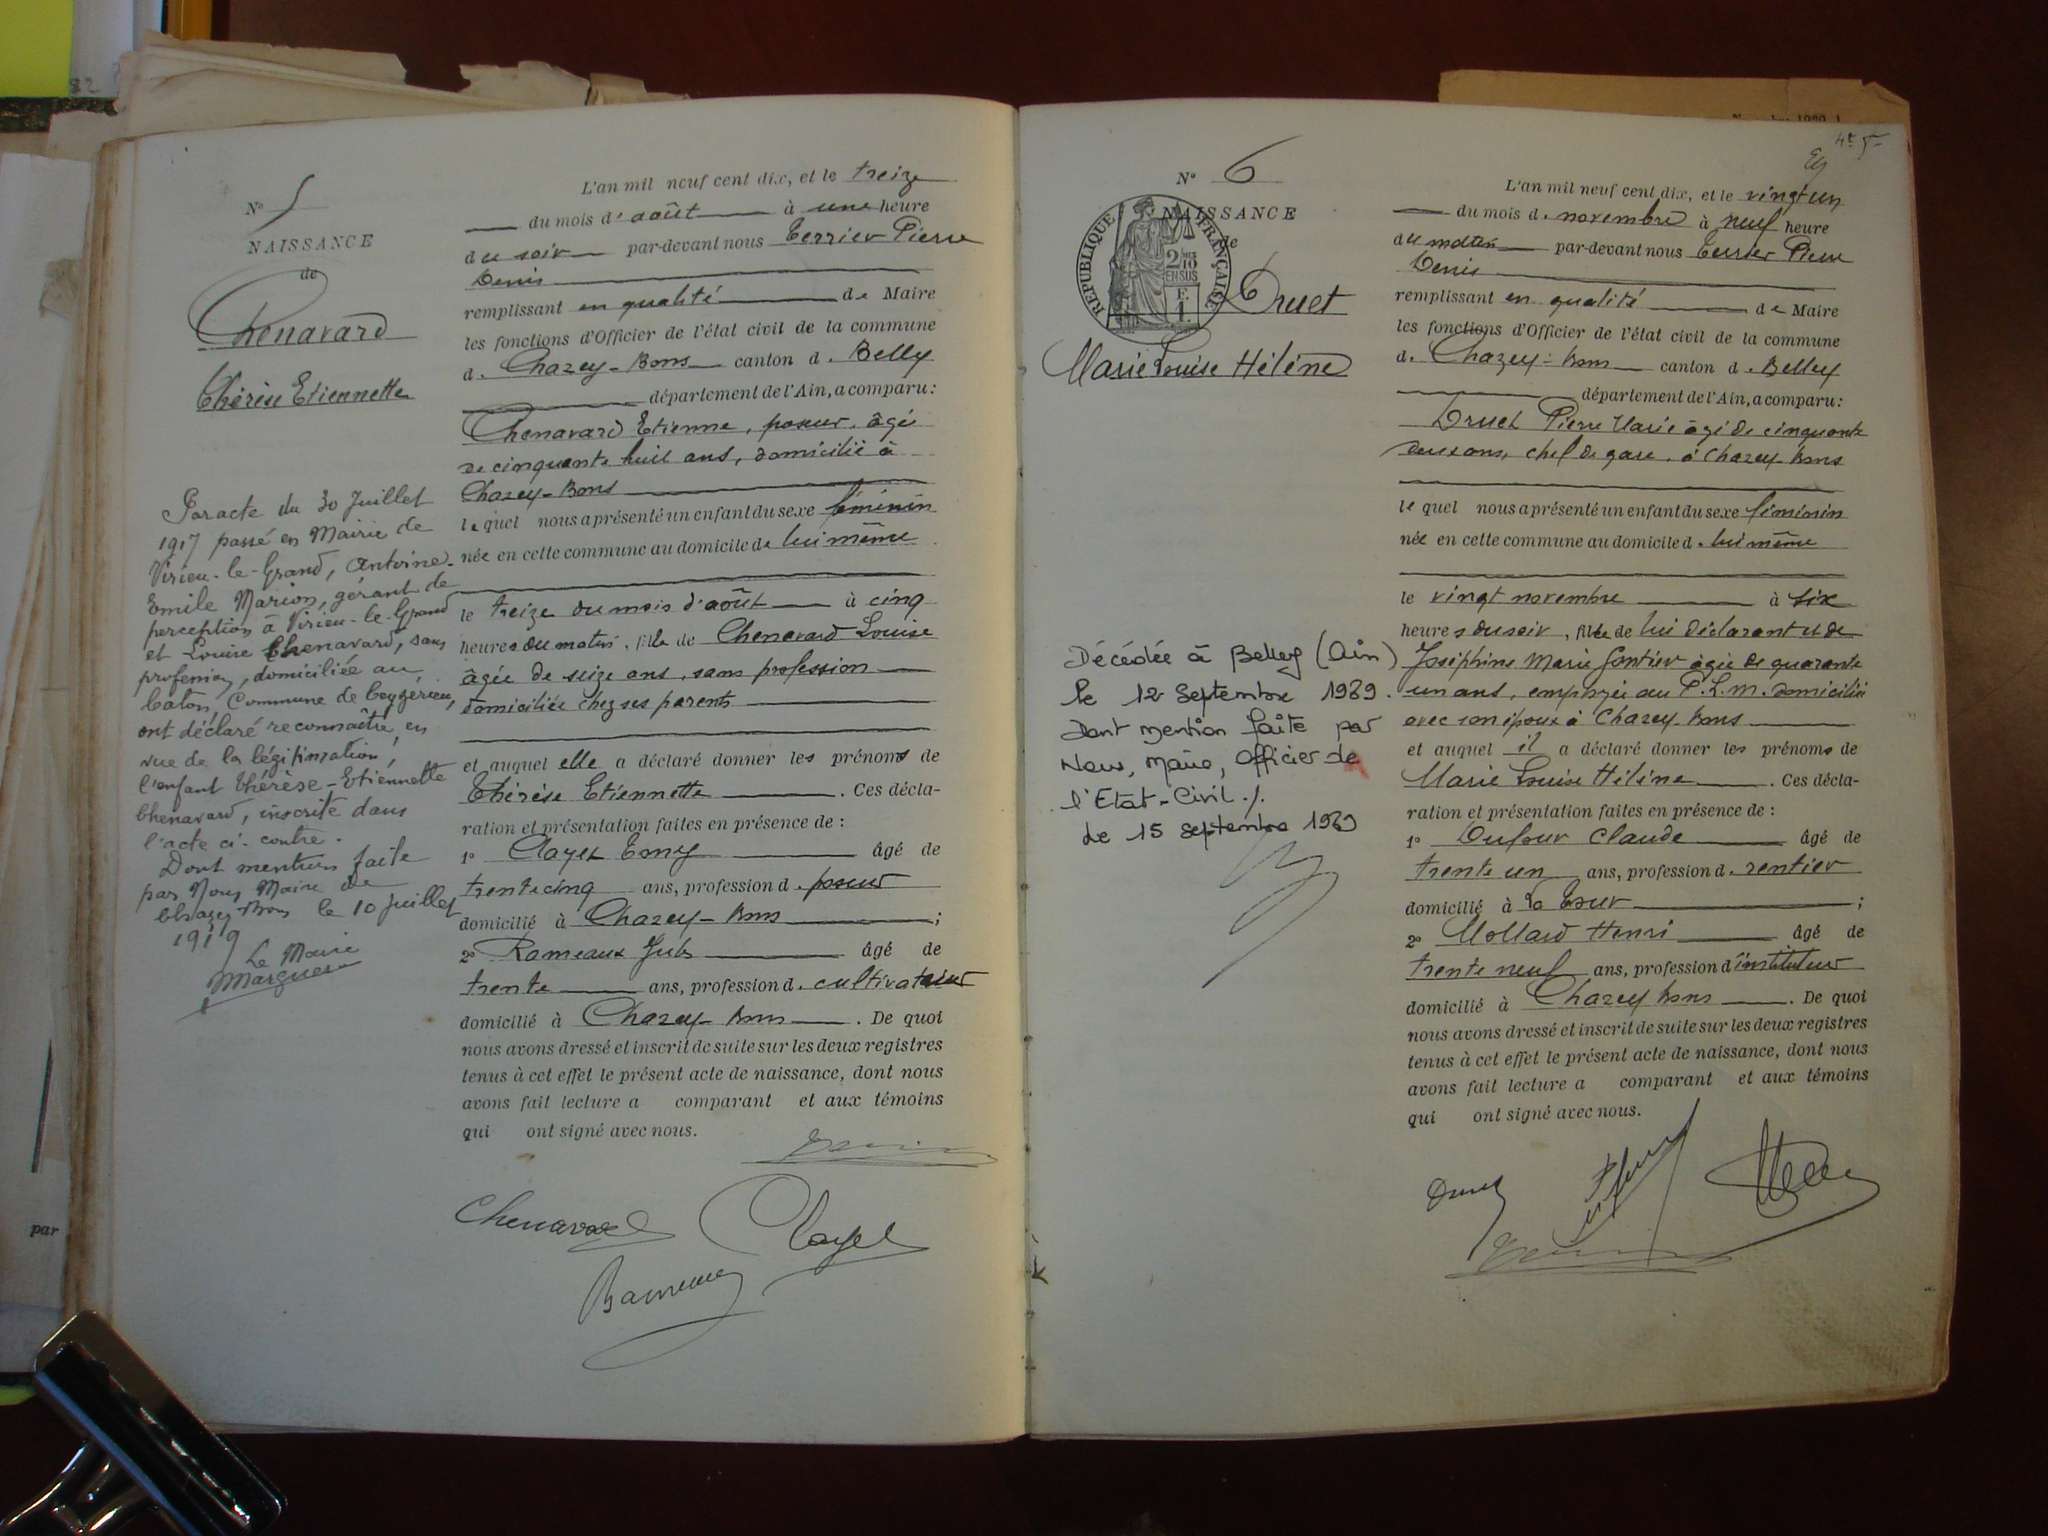 N° 5
NAISSANCE
de
Chenavard
Thérèse Etiennette
Par acte du 30 Juillet
1917 passé en Mairie de
Virieu-le-Grand, Antoine-
Emile Marion, gérant de
perception à Virieu-le-Grand
et Louise Chenavard, sans
profession, domiciliée au
Caton, Commune de Ceyzérieu,
ont déclaré reconnaître, en
vue de la légitimation,
l'enfant Thérèse-Etiennette
Chenavard, inscrite dans
l'acte ci-contre.
Dont mention faite
par Nous Maire de
Chazey-Bons le 10 Juillet
1919
Le Maire
L'an mil neuf cent dix, et le treize
du mois d'août à une heure
du soir par-devant nous Terrier Pierre
Denis
remplissant en qualité de Maire
les fonctions d'Officier de l'état civil de la commune
d. Chazey-Bons canton d. Belley
département de l'Ain, a comparu:
Chenavard Etienne, poseur, âgé
de cinquante huit ans, domicilié à
Chazey-Bons
lequel nous a présenté un enfant du sexe féminin
née en cette commune au domicile de lui même
le treize du mois d'août à cinq
heures du matin, fille de Chenavard Louise
âgée de seize ans, sans profession
domiciliée chez ses parents
et auquel elle a déclaré donner les prénoms de
Thérèse Etiennette. Ces décla-
ration et présentation faites en présence de:
1° Clayet Tony âgé de
trente cinq ans, profession d. poseur
domicilié à Chazey-Bons;
2° Rameaux Jules âgé de
trente ans, profession d. cultivateur
domicilié à Chazey-Bons. De quoi
nous avons dressé et inscrit de suite sur les deux registres
tenus à cet effet le présent acte de naissance, dont nous
avons fait lecture a comparant et aux témoins
qui ont signé avec nous.
Chenavard Clayet
Rameaux
par
N° 6
NAISSANCE
de
RÉPUBLIQUE FRANÇAISE
2/10 EN SUS
Druet
Marie Louise Hélène
Décédée à Belley (Ain)
le 12 Septembre 1989.
Dont mention faite par
Nous, Maire, Officier de
l'Etat-Civil ./.
Le 15 Septembre 1989
L'an mil neuf cent dix, et le vingt un
du mois d. novembre à neuf heure
du matin par-devant nous Terrier Pierre
Denis
remplissant en qualité de Maire
les fonctions d'Officier de l'état civil de la commune
d. Chazey-Bons canton d. Belley
département de l'Ain, a comparu:
Druet Pierre Marie âgé de cinquante
deux ans, chef de gare, à Chazey-Bons
lequel nous a présenté un enfant du sexe féminin
née en cette commune au domicile d. lui même
le vingt novembre à six
heures du soir, fille de lui déclarant et de
Joséphine Marie Gontier âgée de quarante
un ans, employée au P.L.M. domiciliée
avec son époux à Chazey-Bons
et auquel il a déclaré donner les prénoms de
Marie Louise Hélène. Ces décla-
ration et présentation faites en présence de:
1° Dufour Claude âgé de
trente un ans, profession d. rentier
domicilié à La Tour;
2° Mollard Henri âgé de
trente neuf ans, profession d'instituteur
domicilié à Chazey Bons. De quoi
nous avons dressé et inscrit de suite sur les deux registres
tenus à cet effet le présent acte de naissance, dont nous
avons fait lecture a comparant et aux témoins
qui ont signé avec nous.
Druet